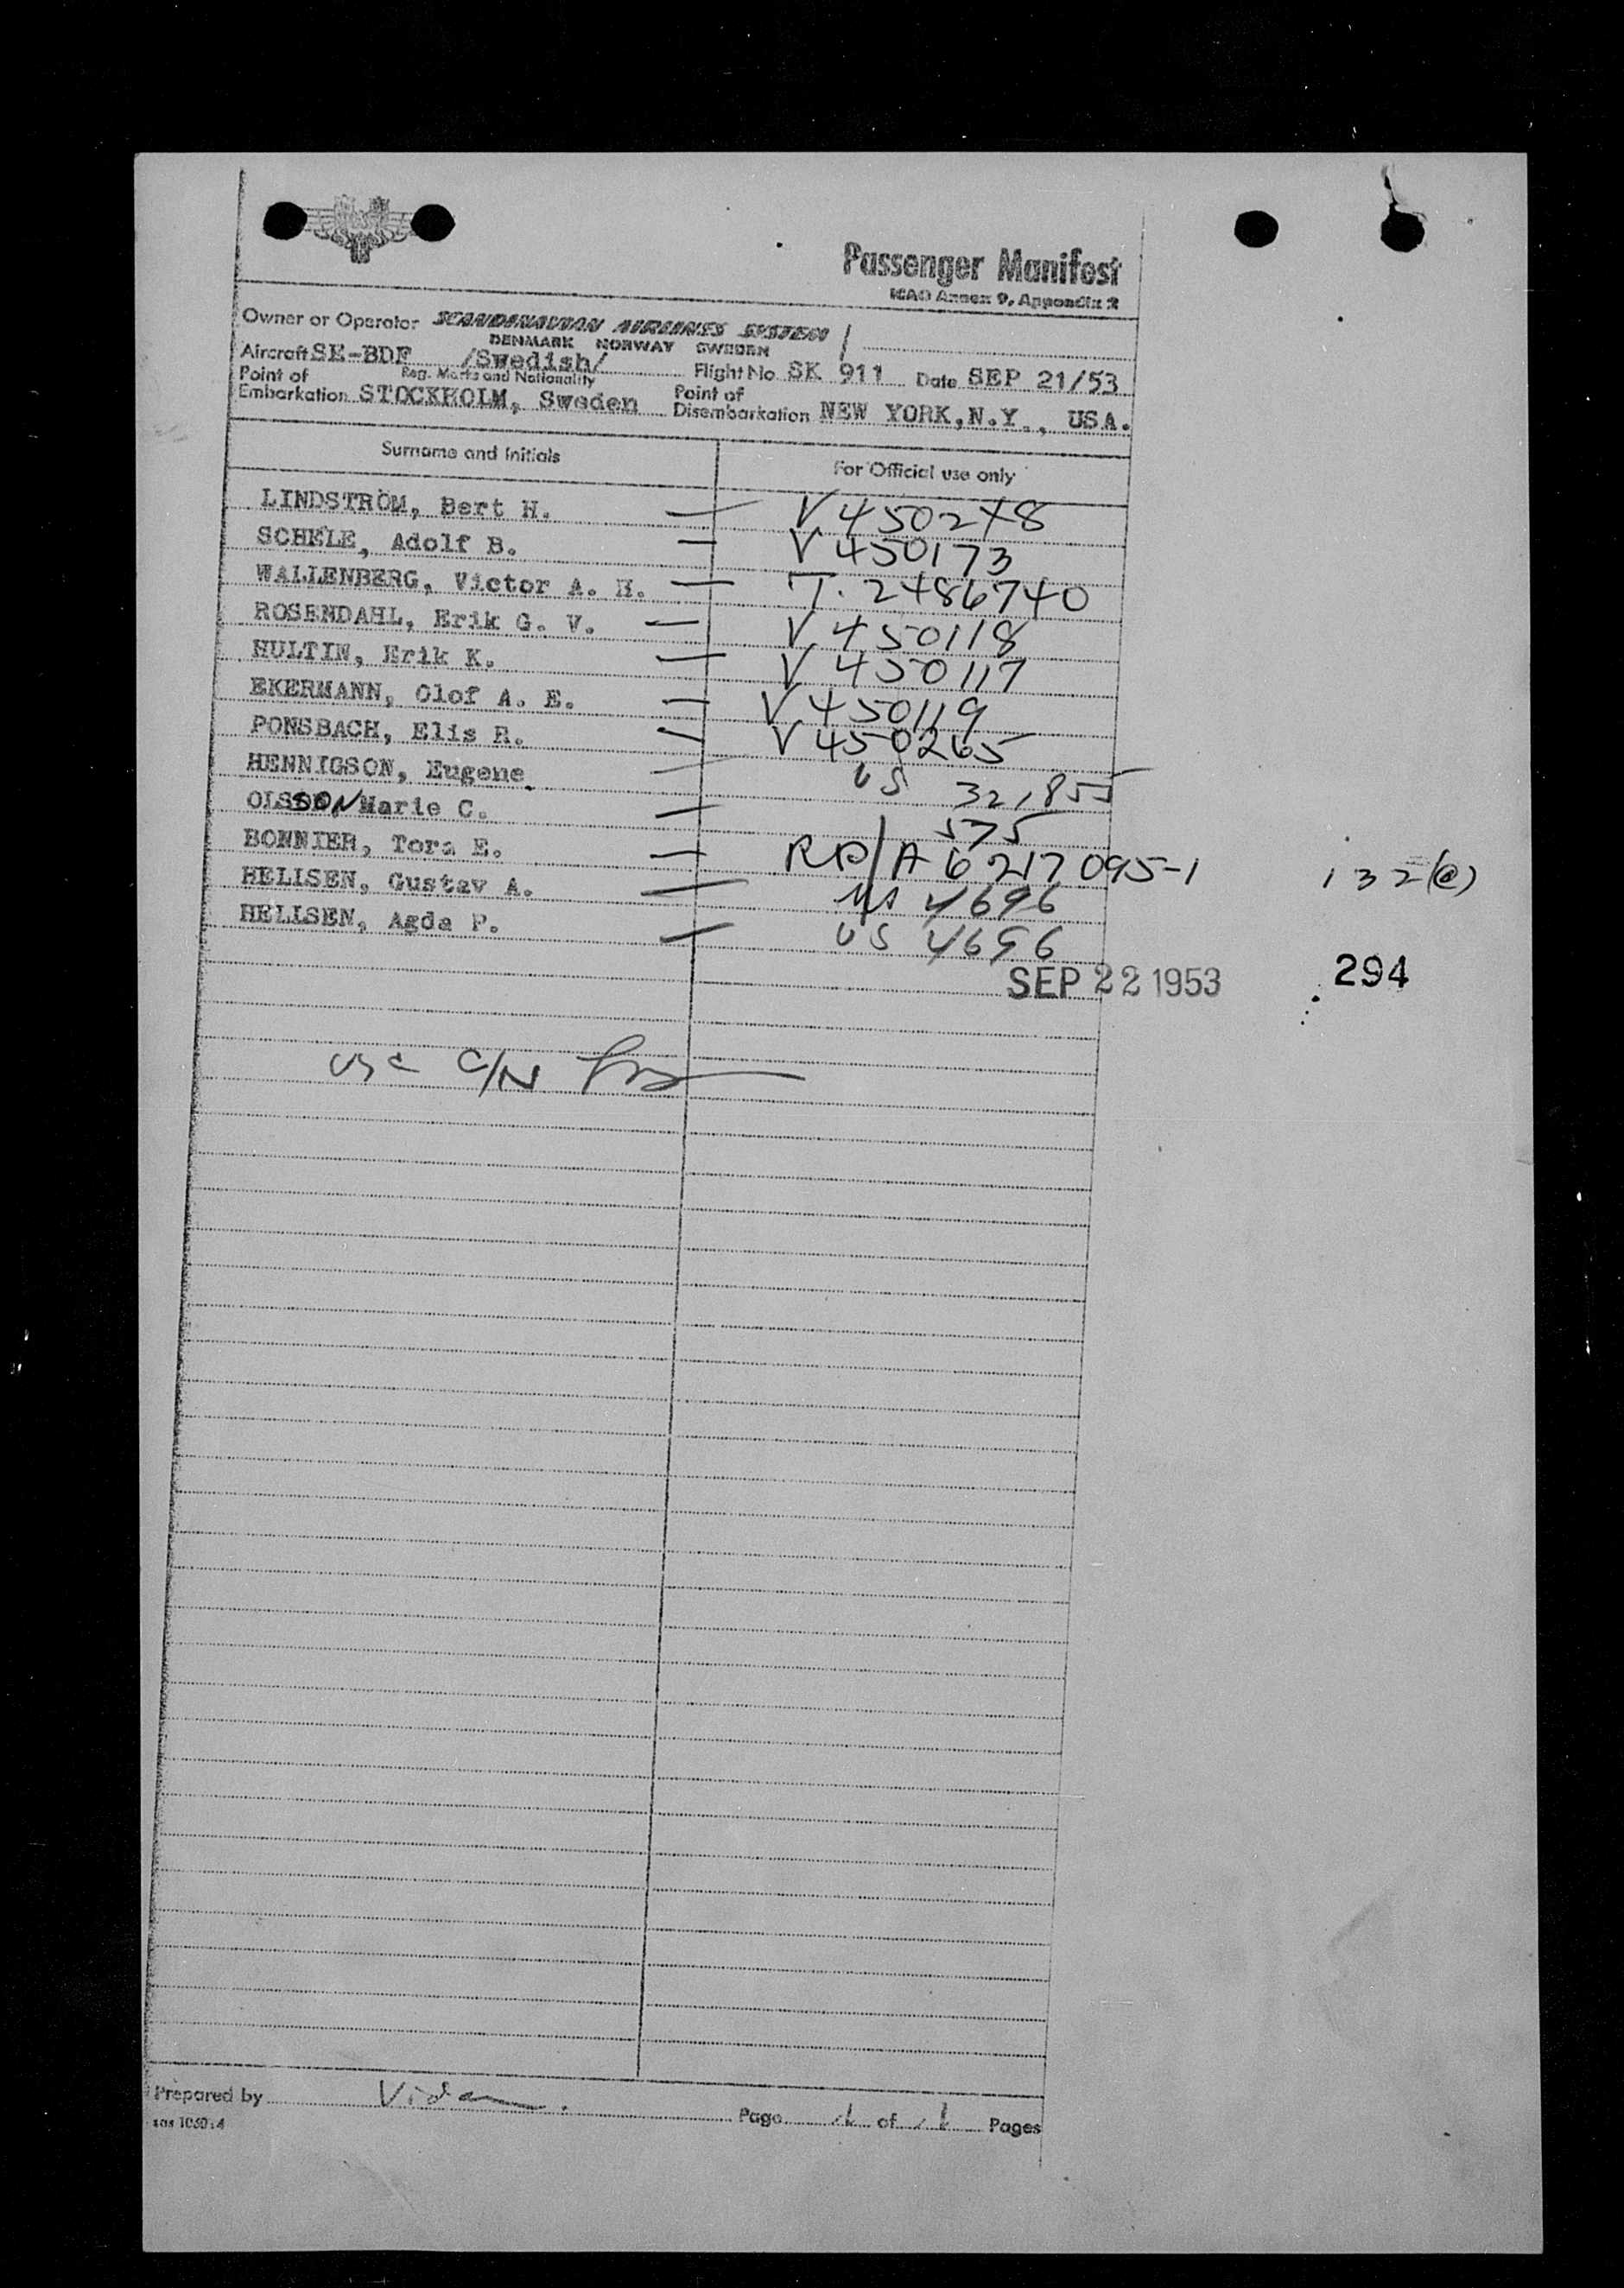 Passenger Manifest
ICAO Annex 9, Appendix 2
Owner or Operator SCANDINAVIAN AIRLINES SYSTEM
DENMARK NORWAY SWEDEN
Aircraft SE-BDF /Swedish/ Flight No SK 911 Date SEP 21/53
Reg. Marks and Nationality
Point of Embarkation STOCKHOLM, Sweden Point of Disembarkation NEW YORK, N.Y., USA.
Surname and Initials For Official use only
LINDSTRÖM, Bert H. — V 450278
SCHÉLE, Adolf B. — V 450173
WALLENBERG, Victor A. H. — T. 2486740
ROSENDAHL, Erik G. V. — V 450118
HULTIN, Erik K. — V 450117
EKERMANN, Olof A. E. — V 450119
PONSBACH, Elis R. — V 450265
HENNIGSON, Eugene — US 321855
OLSSON Marie C. — 575
BONNIER, Tora E. — RP/A 6217095-1 132(@)
HELLSEN, Gustav A. — US 4696
HELLSEN, Agda P. — US 4696
SEP 22 1953 294
USC C/N
Prepared by
Page 1 of 1 Pages
sas 1060:4